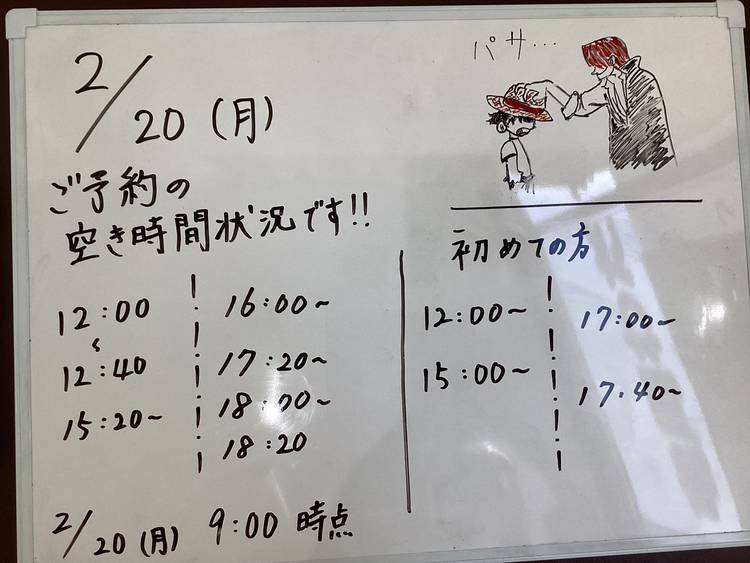 2/20(月)
パサ…
ご予約の
空き時間状況です!!
12:00
〜
12:40
15:20〜
16:00〜
17:20〜
18:00〜
18:20
初めての方
12:00〜
15:00〜
17:00〜
17.40〜
2/20(月) 9:00 時点